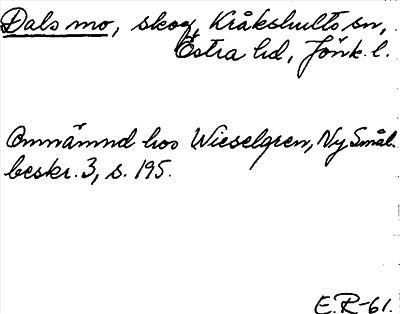 Dals mo, skog, Kråkshults sn,
Östra hd, Jönk. l.
Omnämnd hos Wieselgren, Ny Smål.
beskr. 3, s. 195.
E.R-61.